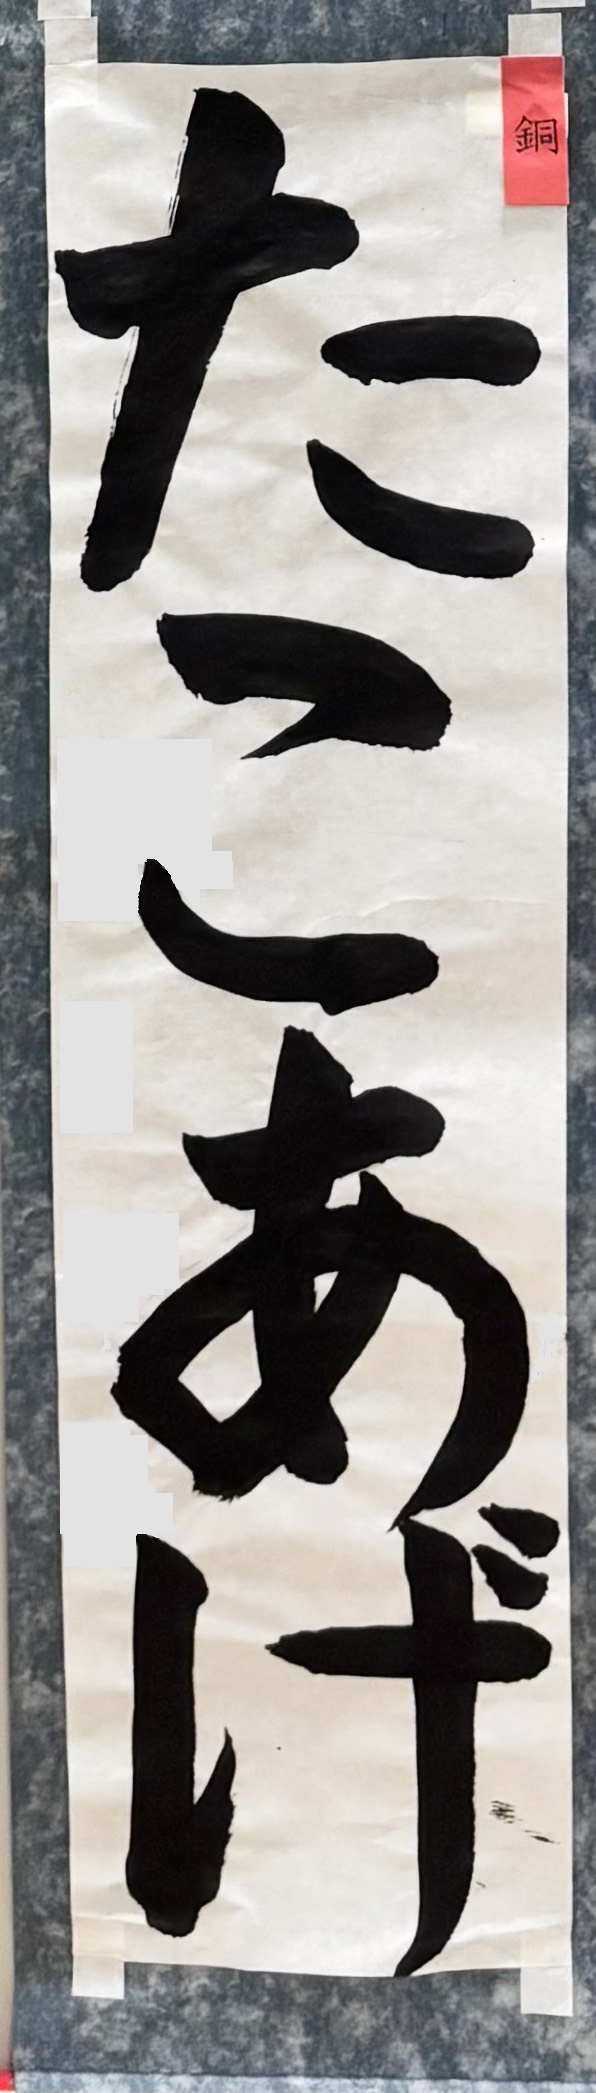 銅
たこあげ